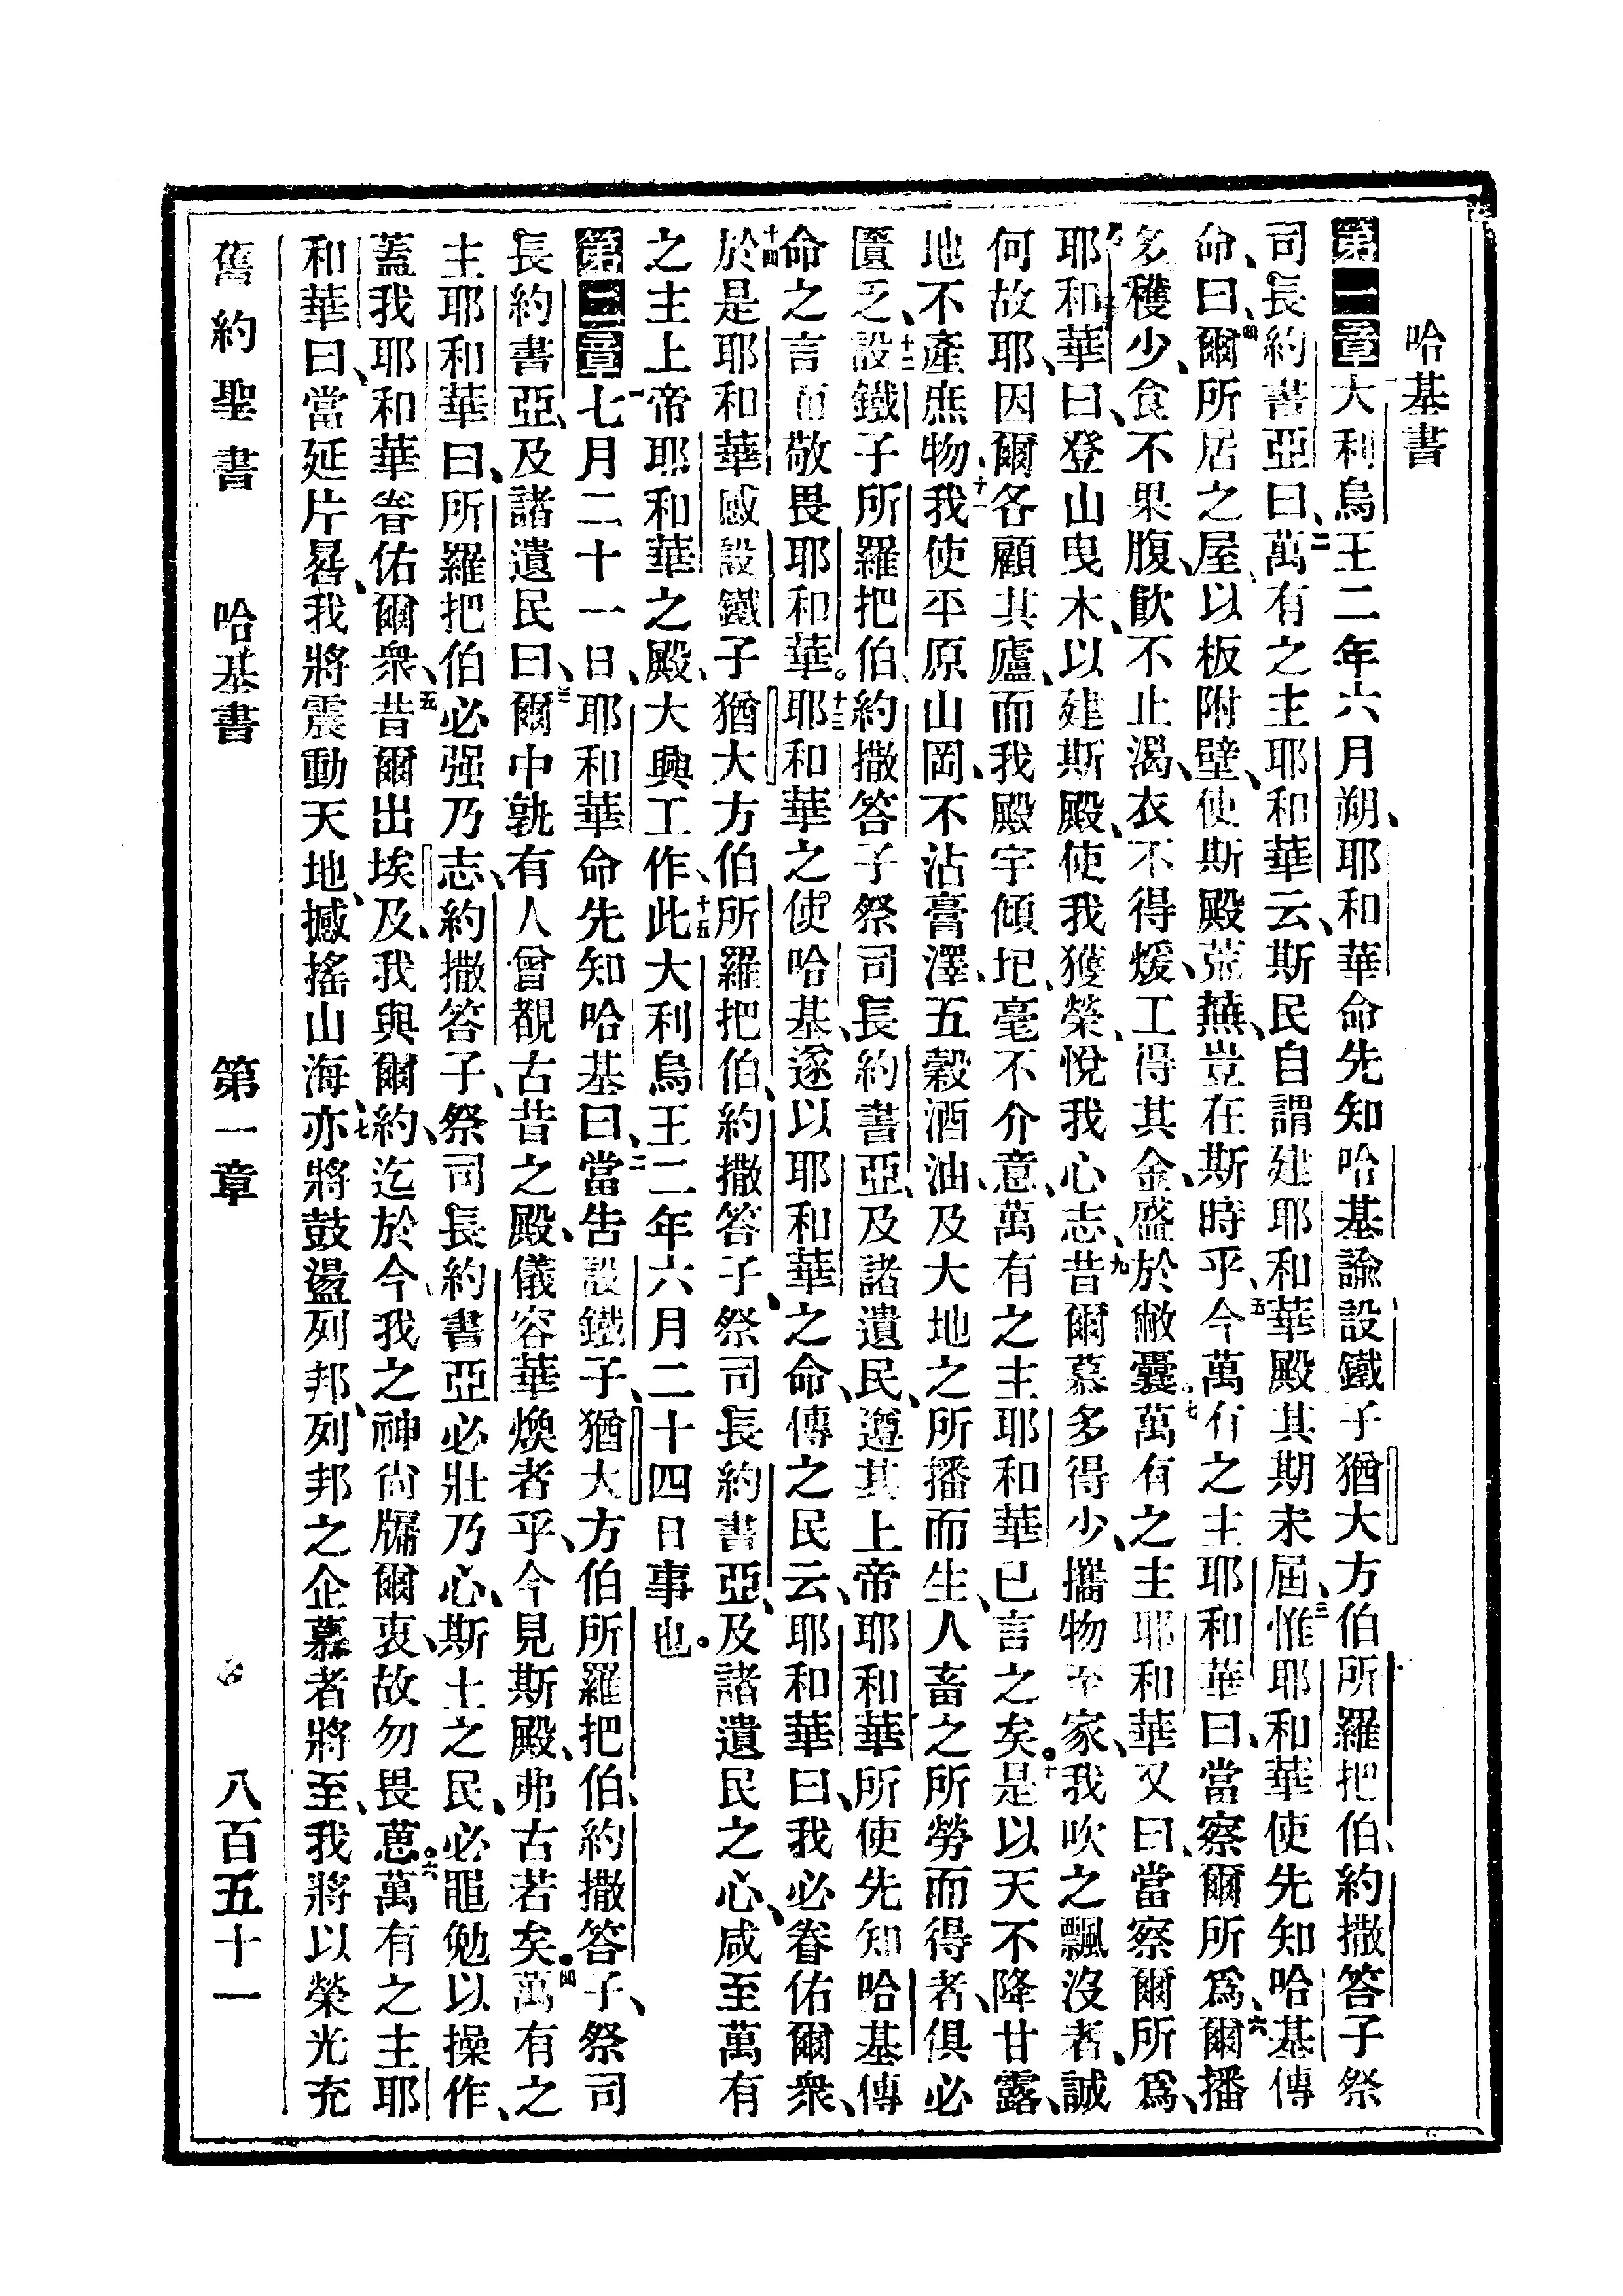 哈基書
第一章大利烏王二年六月朔、耶和華命先知哈基諭設鐵子猶大方伯所羅把伯、約撒答子祭
司長約書亞曰、二萬有之主耶和華云、斯民自謂建耶和華殿其期未屆、三惟耶和華使先知哈基傳
命、曰、四爾所居之屋、以板附壁、使斯殿荒蕪、豈在斯時乎、五今萬有之主耶和華曰、當察爾所爲、六爾播
多穫少、食不果腹、飮不止渴、衣不得煖、工得其金、盛於敝囊。七萬有之主耶和華又曰、當察爾所爲、
八耶和華曰、登山曳木、以建斯殿、使我獲榮、悅我心志、九昔爾慕多得少、攜物至家、我吹之飄沒者、誠
何故耶、因爾各顧其廬、而我殿宇傾圮、毫不介意、萬有之主耶和華已言之矣。十是以天不降甘露、
地不產庶物、十一我使平原山岡、不沾膏澤、五穀酒油、及大地之所播而生、人畜之所勞而得者、俱必
匱乏、十二設鐵子所羅把伯、約撒答子祭司長約書亞、及諸遺民、遵其上帝耶和華所使先知哈基傳
命之言而敬畏耶和華。十三耶和華之使哈基、遂以耶和華之命、傳之民云、耶和華曰、我必眷佑爾衆、
十四於是耶和華感設鐵子猶大方伯所羅把伯、約撒答子、祭司長約書亞、及諸遺民之心、咸至萬有
之主上帝耶和華之殿、大興工作、十五此大利烏王二年六月二十四日事也。
第二章一七月二十一日、耶和華命先知哈基曰、二當告設鐵子、猶大方伯所羅把伯、約撒答子、祭司
長約書亞、及諸遺民曰、三爾中孰有人曾覩古昔之殿、儀容華煥者乎、今見斯殿、弗古若矣。四萬有之
主耶和華曰、所羅把伯必强乃志、約撒答子、祭司長約書亞必壯乃心、斯土之民、必黽勉以操作、
蓋我耶和華眷佑爾衆、五昔爾出埃及、我與爾約、迄於今、我之神尙牖爾衷、故勿畏葸。六萬有之主耶
和華曰、當延片晷、我將震動天地、撼搖山海、七亦將鼓盪列邦、列邦之企慕者將至、我將以榮光充
舊約聖書 哈基書 第一章 八百五十一